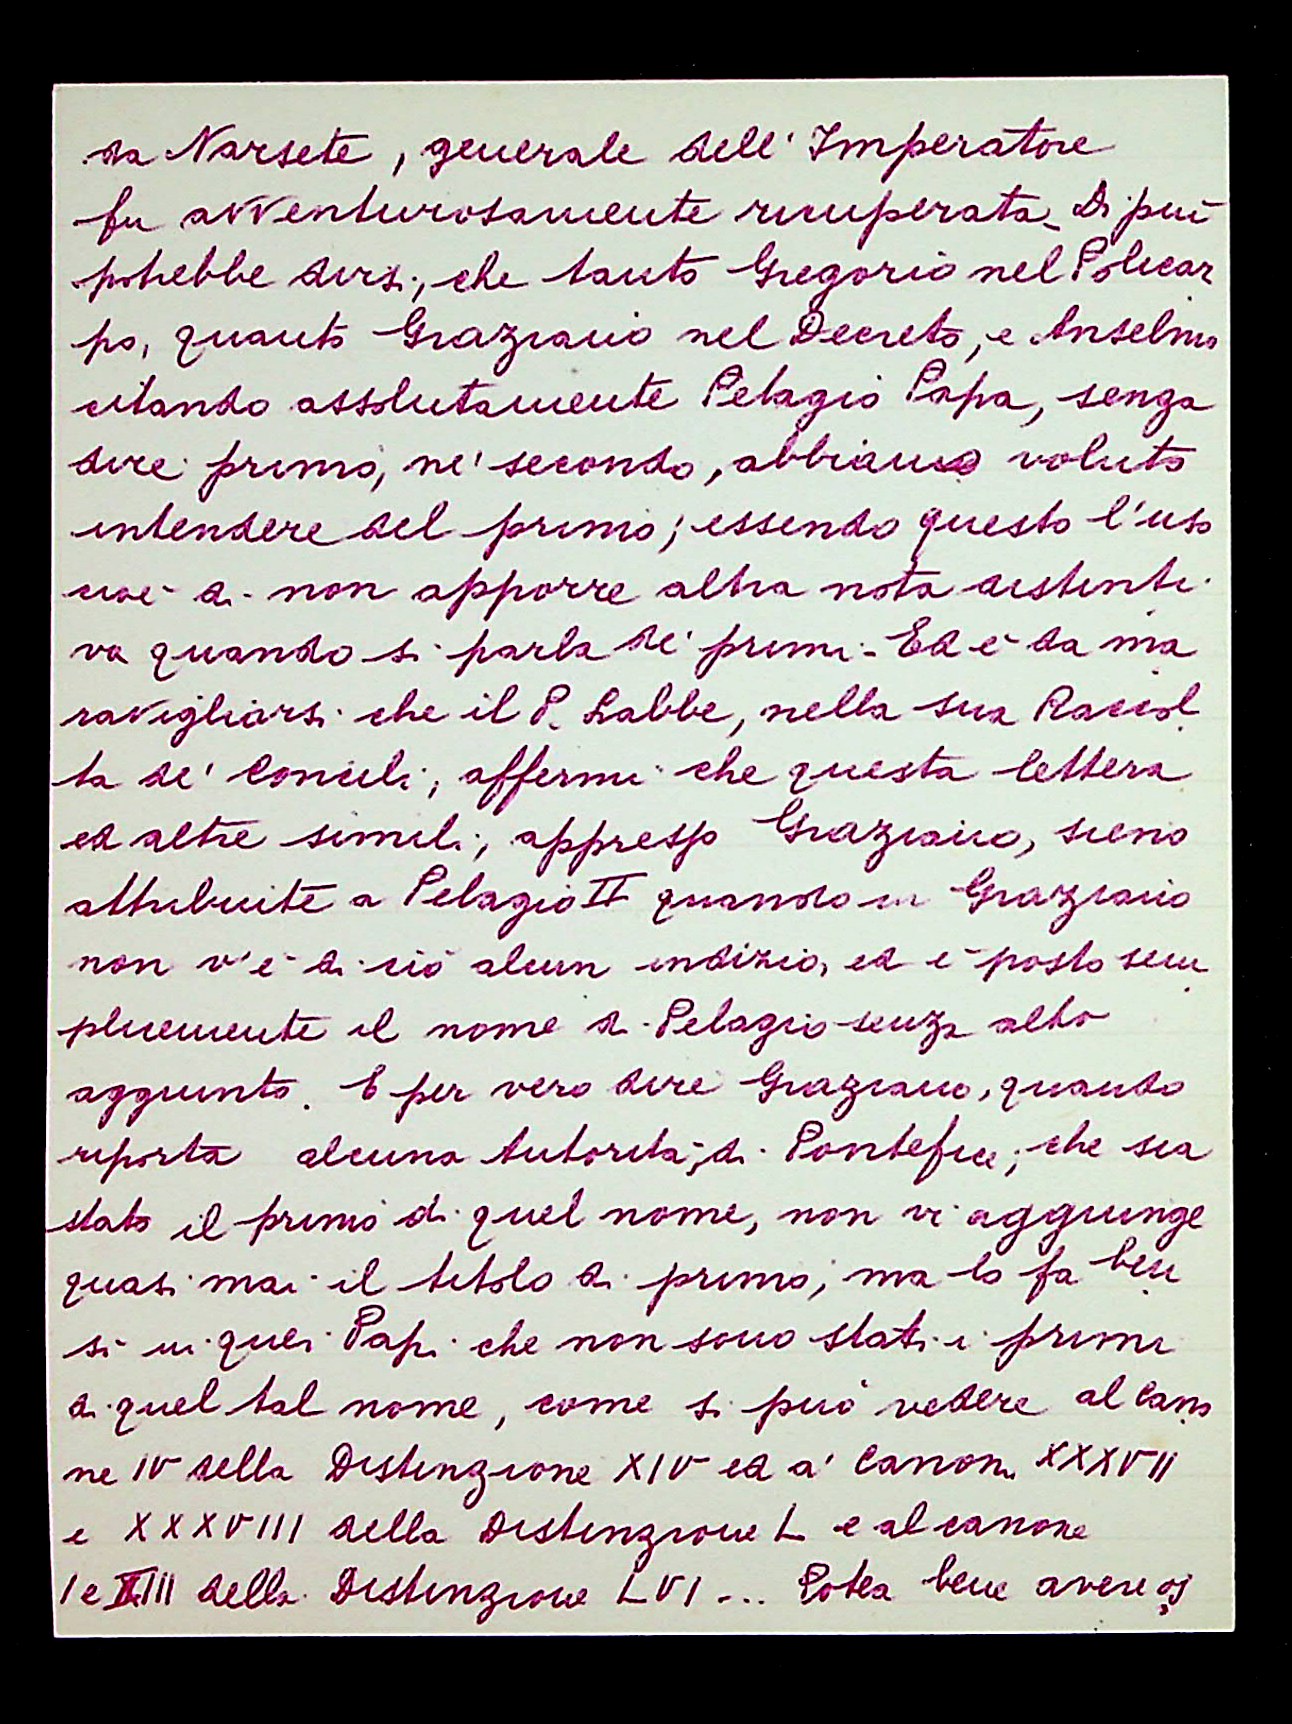 da Narsete, generale dell'Imperatore
fu avventurosamente ricuperata. Di più
potrebbe dirsi, che tanto Gregorio nel Policar
po, quanto Graziano nel Decreto, e Anselmo
citando assolutamente Pelagio Papa, senza
dire primo, nè secondo, abbiano voluto
intendere del primo; essendo questo l'uso
cioè di non apporre altra nota distinti-
va quando si parla de' primi. Ed è da ma
ravigliarsi che il P. Labbe, nella sua Raccol
ta de' Concili, affermi che questa lettera
ed altre simili, appresso Graziano, sieno
attribuite a Pelagio II quando in Graziano
non v'è di ciò alcun indizio, ed è posto sem
plicemente il nome di Pelagio senza altro
aggiunto. E per vero dire Graziano, quando
riporta alcuna Autorità, di Pontefice, che sia
stato il primo di quel nome, non vi aggiunge
quasi mai il titolo di primo, ma lo fa ben
sì in quei Papi che non sono stati i primi
di quel tal nome, come si può vedere al Cano
ne IV della Distinzione XIV ed a' Canoni XXXVII
e XXXVIII della Distinzione L e al canone
I e XIII della Distinzione LVI ... Potea bene avere